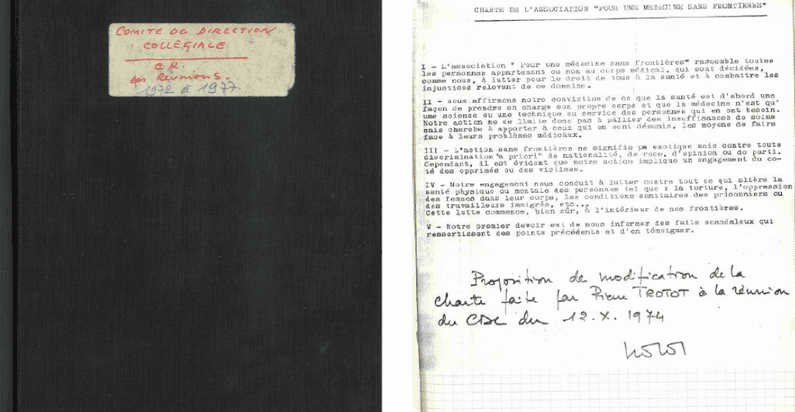 COMITE DE DIRECTION
COLLÉGIALE
C.R.
des Réunions.
1972 à 1977
CHARTE DE L'ASSOCIATION "POUR UNE MEDECINE SANS FRONTIERES"
I - L'association " Pour une médecine sans frontières" rassemble toutes
les personnes appartenant ou non au corps médical, qui sont décidées,
comme nous, à lutter pour le droit de tous à la santé et à combattre les
injustices relevant de ce domaine.
II - Nous affirmons notre conviction de ce que la santé est d'abord une
façon de prendre en charge son propre corps et que la médecine n'est qu'
une science ou une technique au service des personnes qui en ont besoin.
Notre action ne se limite donc pas à pallier des insuffisances de soins
mais cherche à apporter à ceux qui en sont démunis, les moyens de faire
face à leurs problèmes médicaux.
III - L'action sans frontières ne signifie pas explique mais contre toute
discrimination "à priori" de nationalité, de race, d'opinion ou de parti.
Cependant, il est évident que notre action implique un engagement du co-
té des opprimés ou des victimes.
IV - Notre engagement nous conduit à lutter contre tout ce qui altère la
santé physique ou mentale des personnes tel que : la torture, l'oppression
des femmes dans leur corps, les conditions sanitaires des prisonniers ou
des travailleurs immigrés, etc...
Cette lutte commence, bien sûr, à l'intérieur de nos frontières.
V - Notre premier devoir est de nous informer des faits scandaleux qui
ressortissent des points précédents et d'en témoigner.
Proposition de modification de la
charte faite par Pierre TROTOT à la réunion
du CDC du 12.X.1974